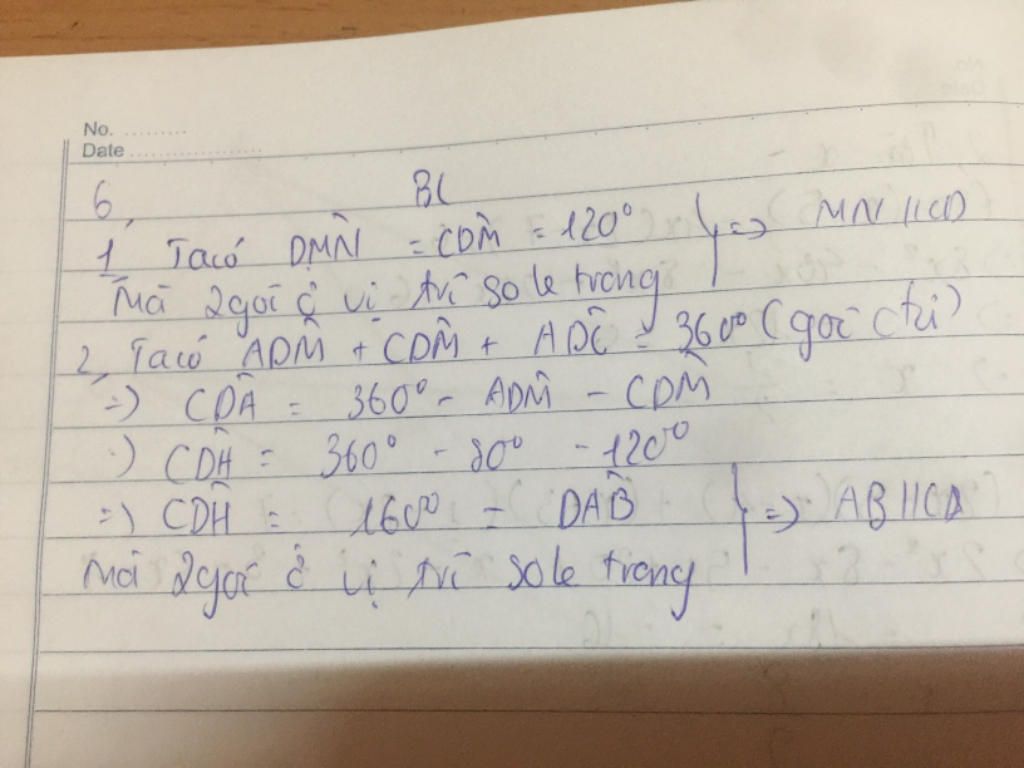 No. ..........
Date ....................
6, BL
1, Ta có DMN̂ = CDM̂ = 120° } => MN // CD
Mà 2 goī ở vị trí sole trong
2, Ta có ADM̂ + CDM̂ + ADĈ = 360° (goī
=> CDÂ = 360° - ADM̂ - CDM̂
=) CDÂ = 360° - 80° - 120°
=> CDÂ = 160° = DAB̂ } => AB // CD
Mà 2 goī ở vị trí sole trong